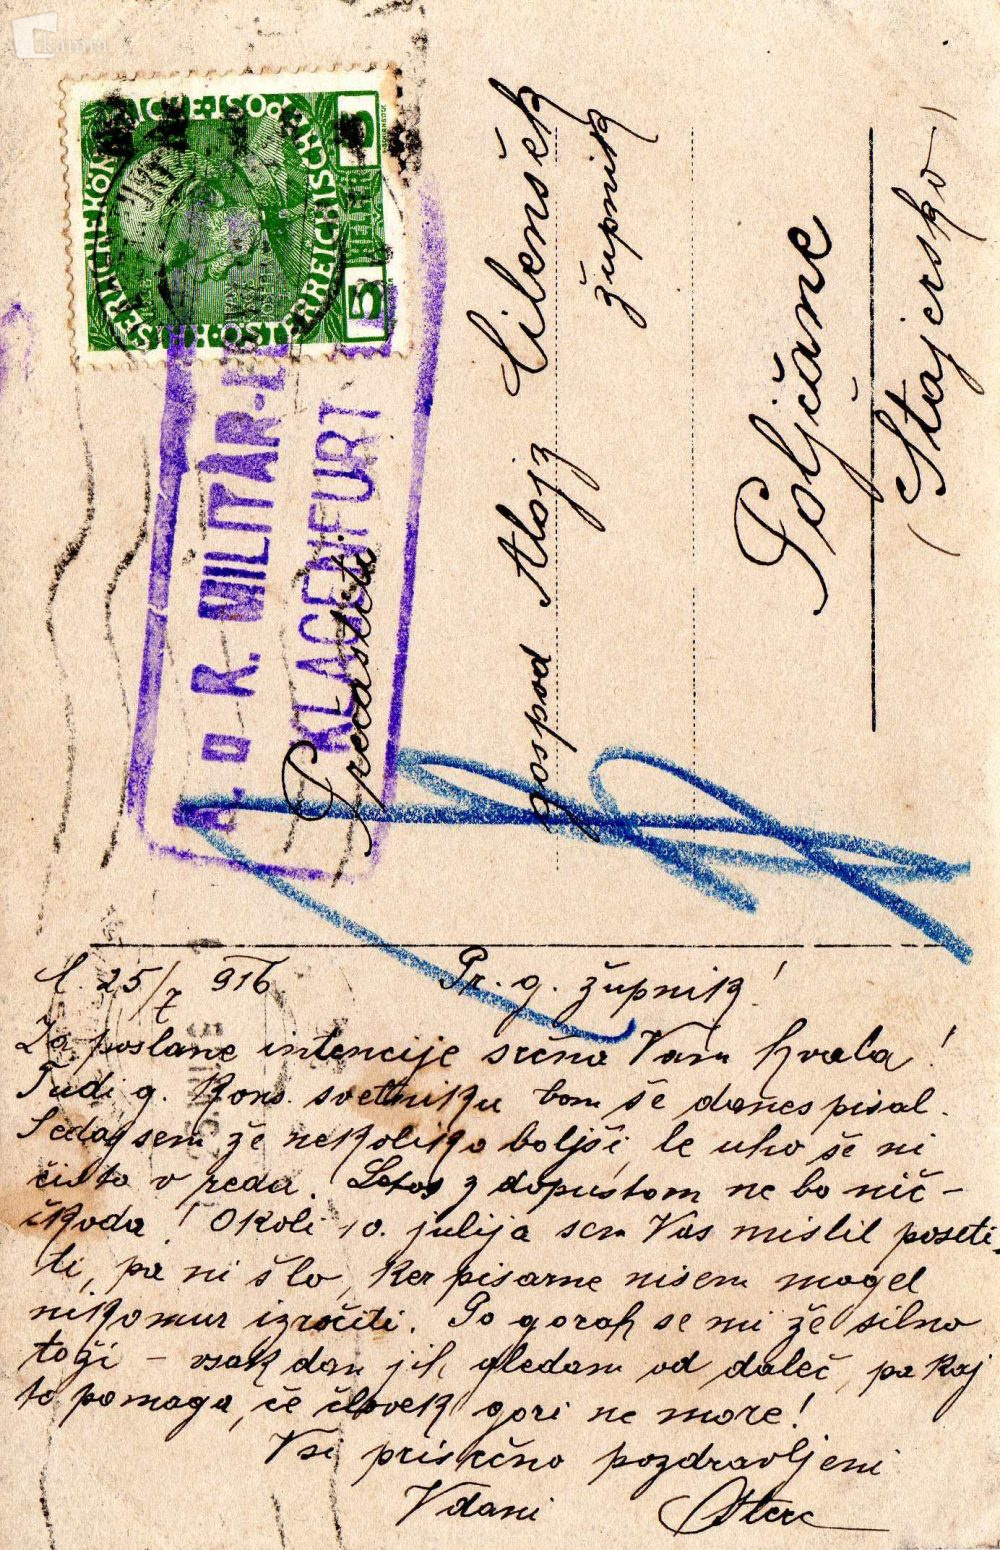 kamra
KAISERL. KÖN
ICHE·POST
ÖSTERREICHISCHE
5
5
HELLER
R. MILITÄR-
KLAGENFURT
Prečastiti
gospod Alojz Cilenšek
župnik
Poljčane
(Štajersko)
C. 25/7 916. Pr. g. župnik!
Za poslane intencije srčna Vam hvala!
Tudi g. kons. svetniku bom še danes pisal.
Sedaj sem že nekoliko boljši, le uho še ni
čisto v redu. Letos z dopustom ne bo nič –
škoda! Okoli 10. julija sem Vas mislil poseti-
ti, pa ni šlo, ker pisarne nisem mogel
nikomur izročiti. Po gorah se mi že silno
toži – vsak dan jih gledam od daleč, pa kaj
to pomaga, če človek gori ne more!
Vsi prisrčno pozdravljeni
Vdani